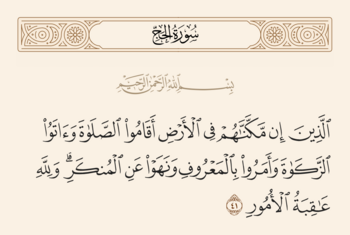 سُورَةُ الحَجِّ
بِسْمِ اللَّهِ الرَّحْمَٰنِ الرَّحِيمِ
ٱلَّذِينَ إِن مَّكَّنَّٰهُمْ فِى ٱلْأَرْضِ أَقَامُوا۟ ٱلصَّلَوٰةَ وَءَاتَوُا۟
ٱلزَّكَوٰةَ وَأَمَرُوا۟ بِٱلْمَعْرُوفِ وَنَهَوْا۟ عَنِ ٱلْمُنكَرِ ۗ وَلِلَّهِ
عَٰقِبَةُ ٱلْأُمُورِ ٤١